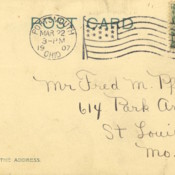 POST CARD
MAR 22
3-PM
19 07
OHIO
Mr Fred M.
614 Park
St Loui
Mo.
THE ADDRESS